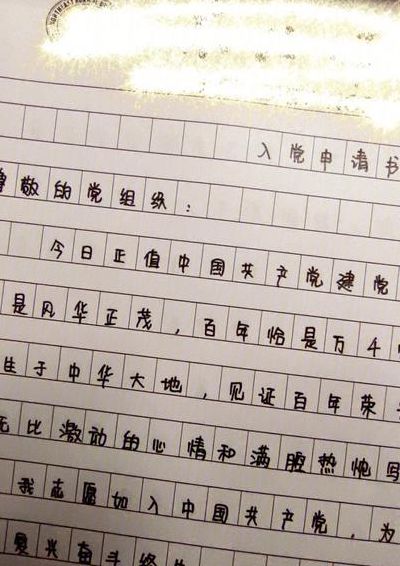 入党申请书
尊敬的党组织：
今日正值中国共产党建党
是风华正茂，百年恰是万千
生于中华大地，见证百年荣
无比激动的心情和满腔热忱写
我志愿加入中国共产党，为
复兴奋斗终